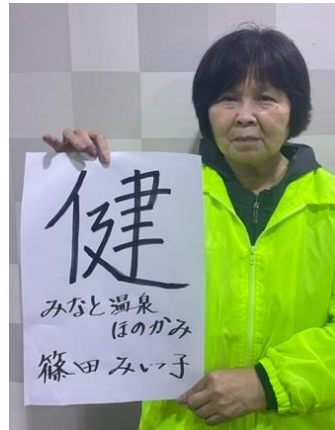 健
みなと温泉
ほのかみ
篠田みい子